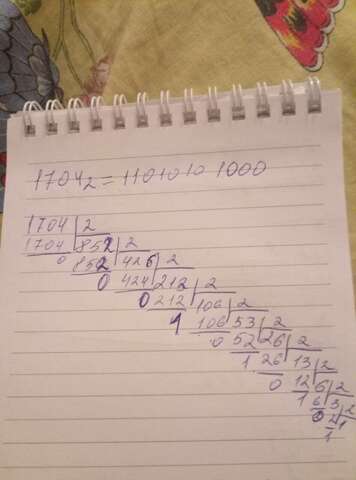 1704₂ = 11010101000
1704 | 2
1704 852 | 2
0 852 426 | 2
0 424 212 | 2
0 212 106 | 2
1 106 53 | 2
0 52 26 | 2
1 26 13 | 2
0 12 6 | 2
1 6 3 | 2
0 2 1
1